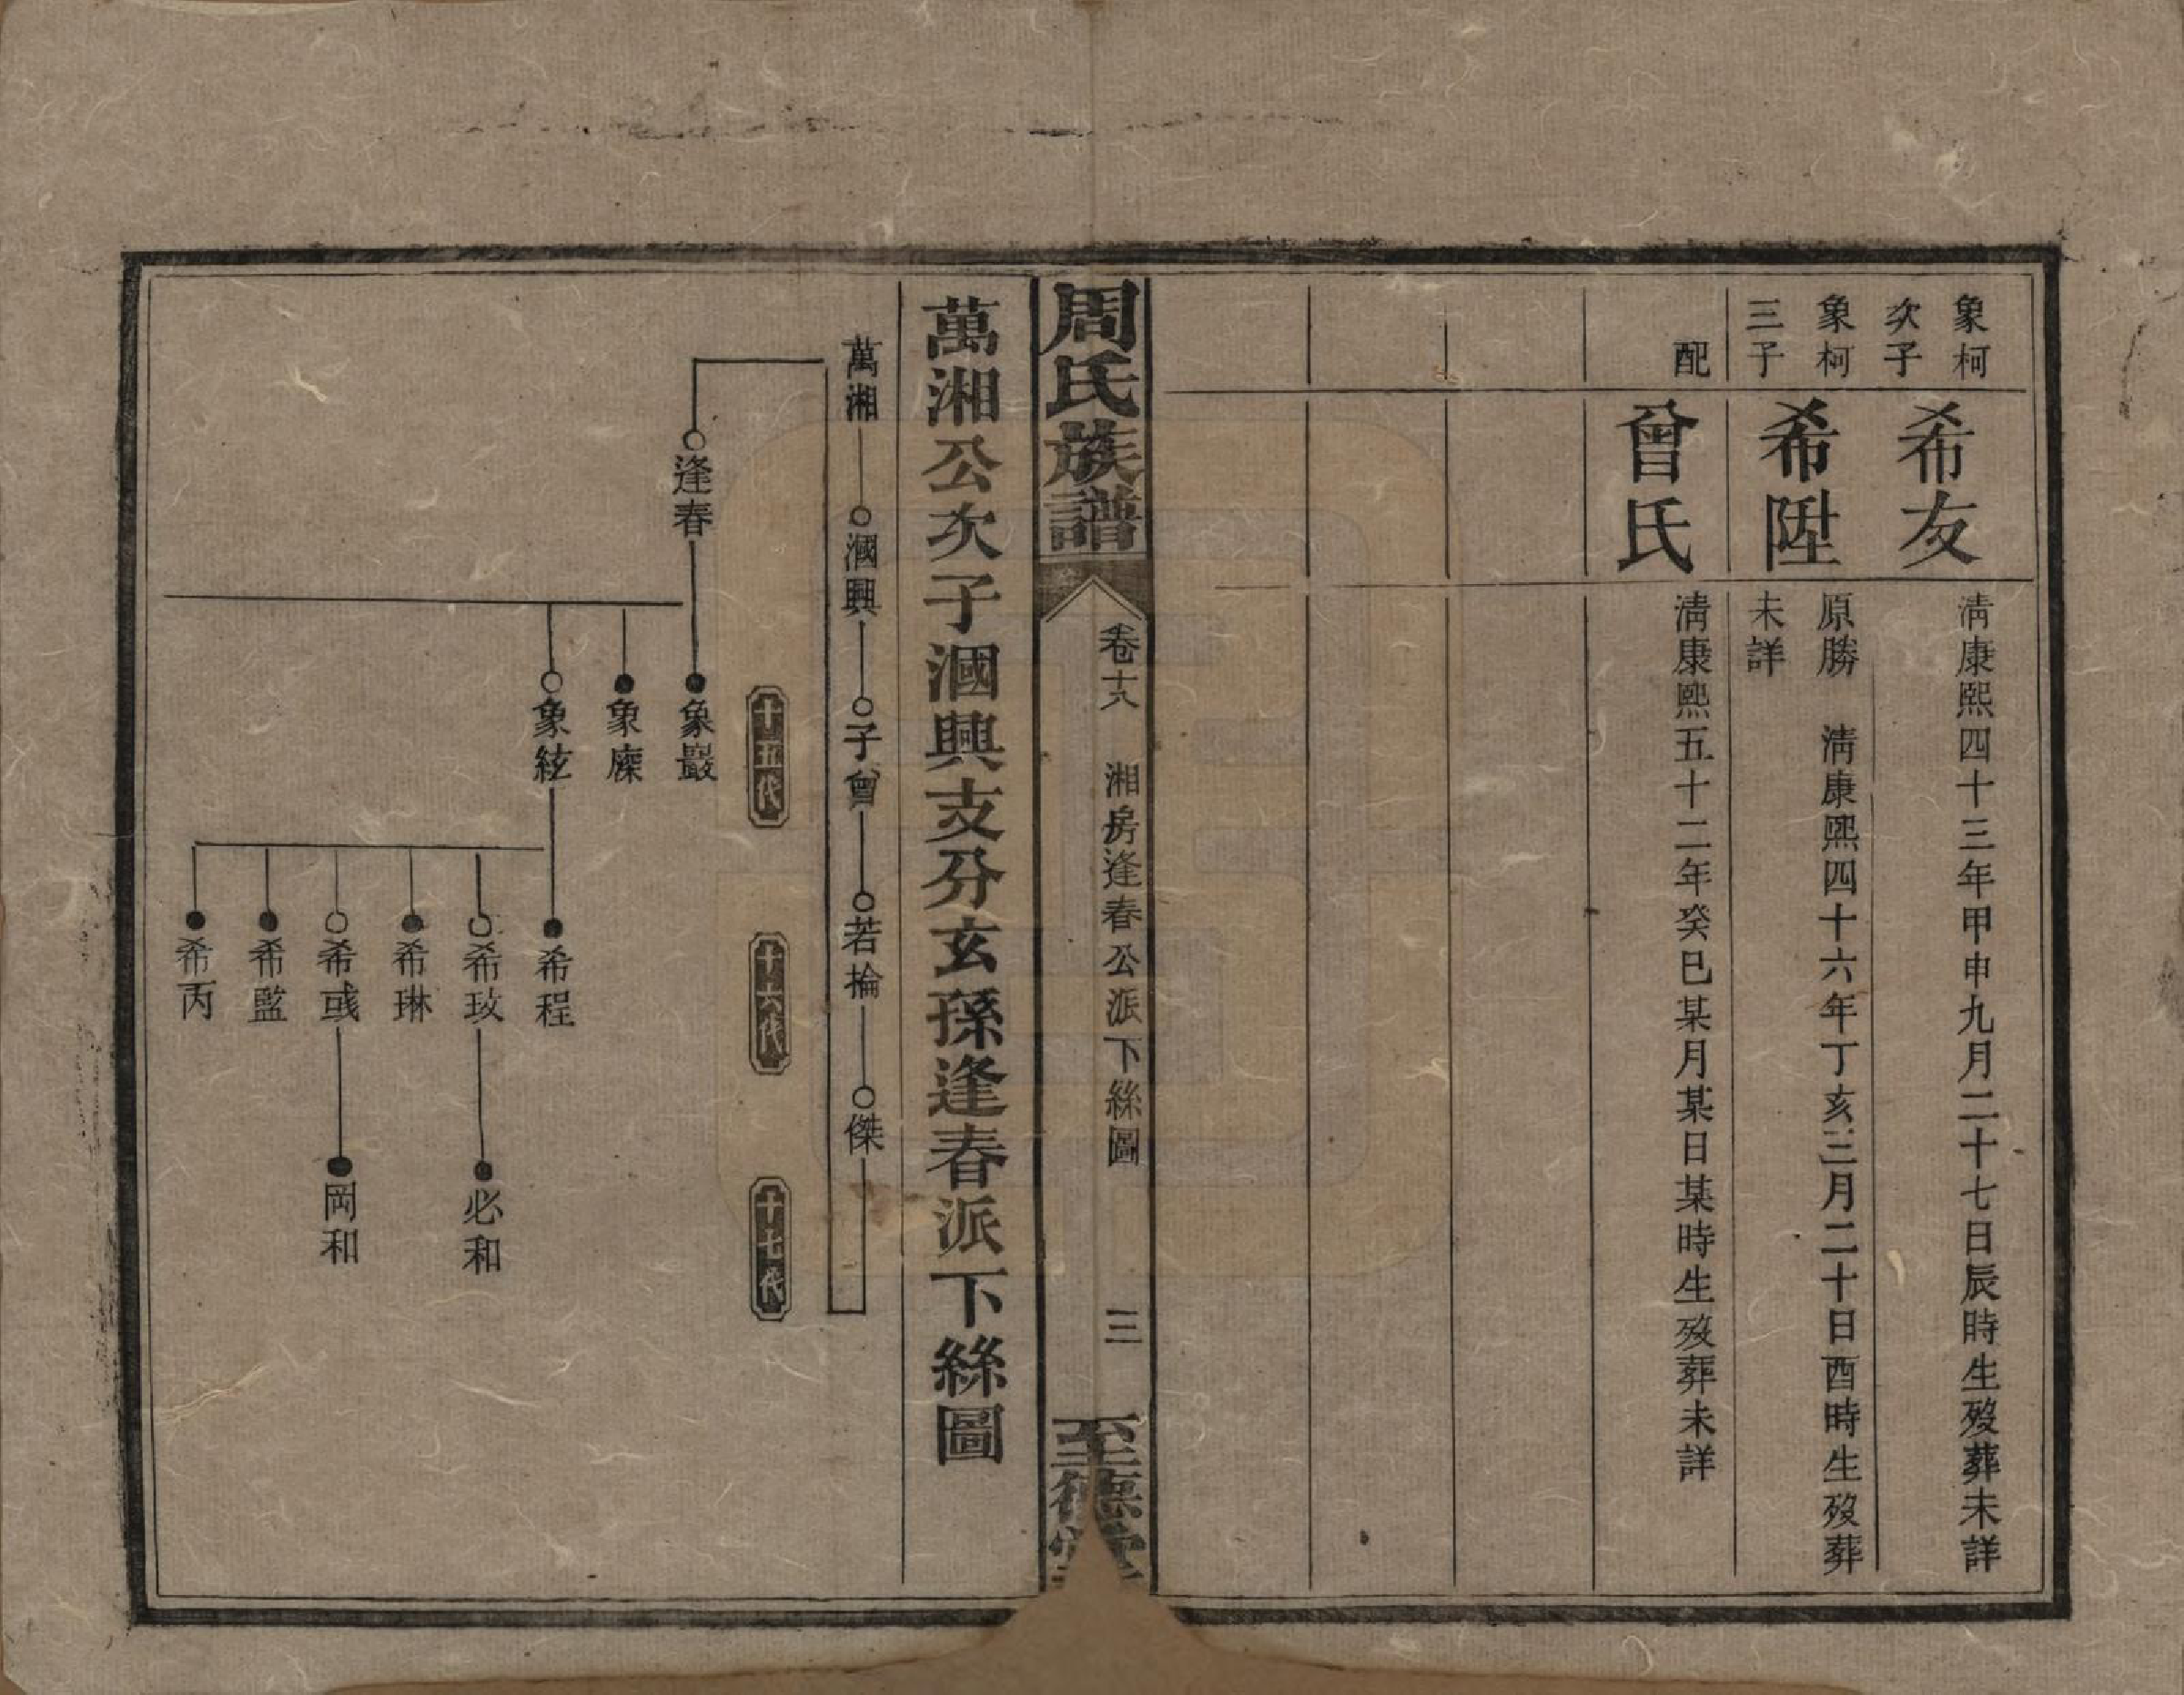 象柯
次子
希友
清康熙四十三年甲申九月二十七日辰時生歿葬未詳
象柯
三子
希陞
原勝　清康熙四十六年丁亥三月二十日酉時生歿葬
未詳
配
曾氏
清康熙五十二年癸巳某月某日某時生歿葬未詳
周氏族譜
卷十八　湘房逢春公派下絲圖
三
至德堂
萬湘公次子漍興支分玄孫逢春派下絲圖
萬湘
漍興
子曾
若掄
傑
十五代
十六代
十七代
逢春
象巖
象㢘
象絃
希程
希玫
希琳
希彧
希監
希丙
必和
岡和